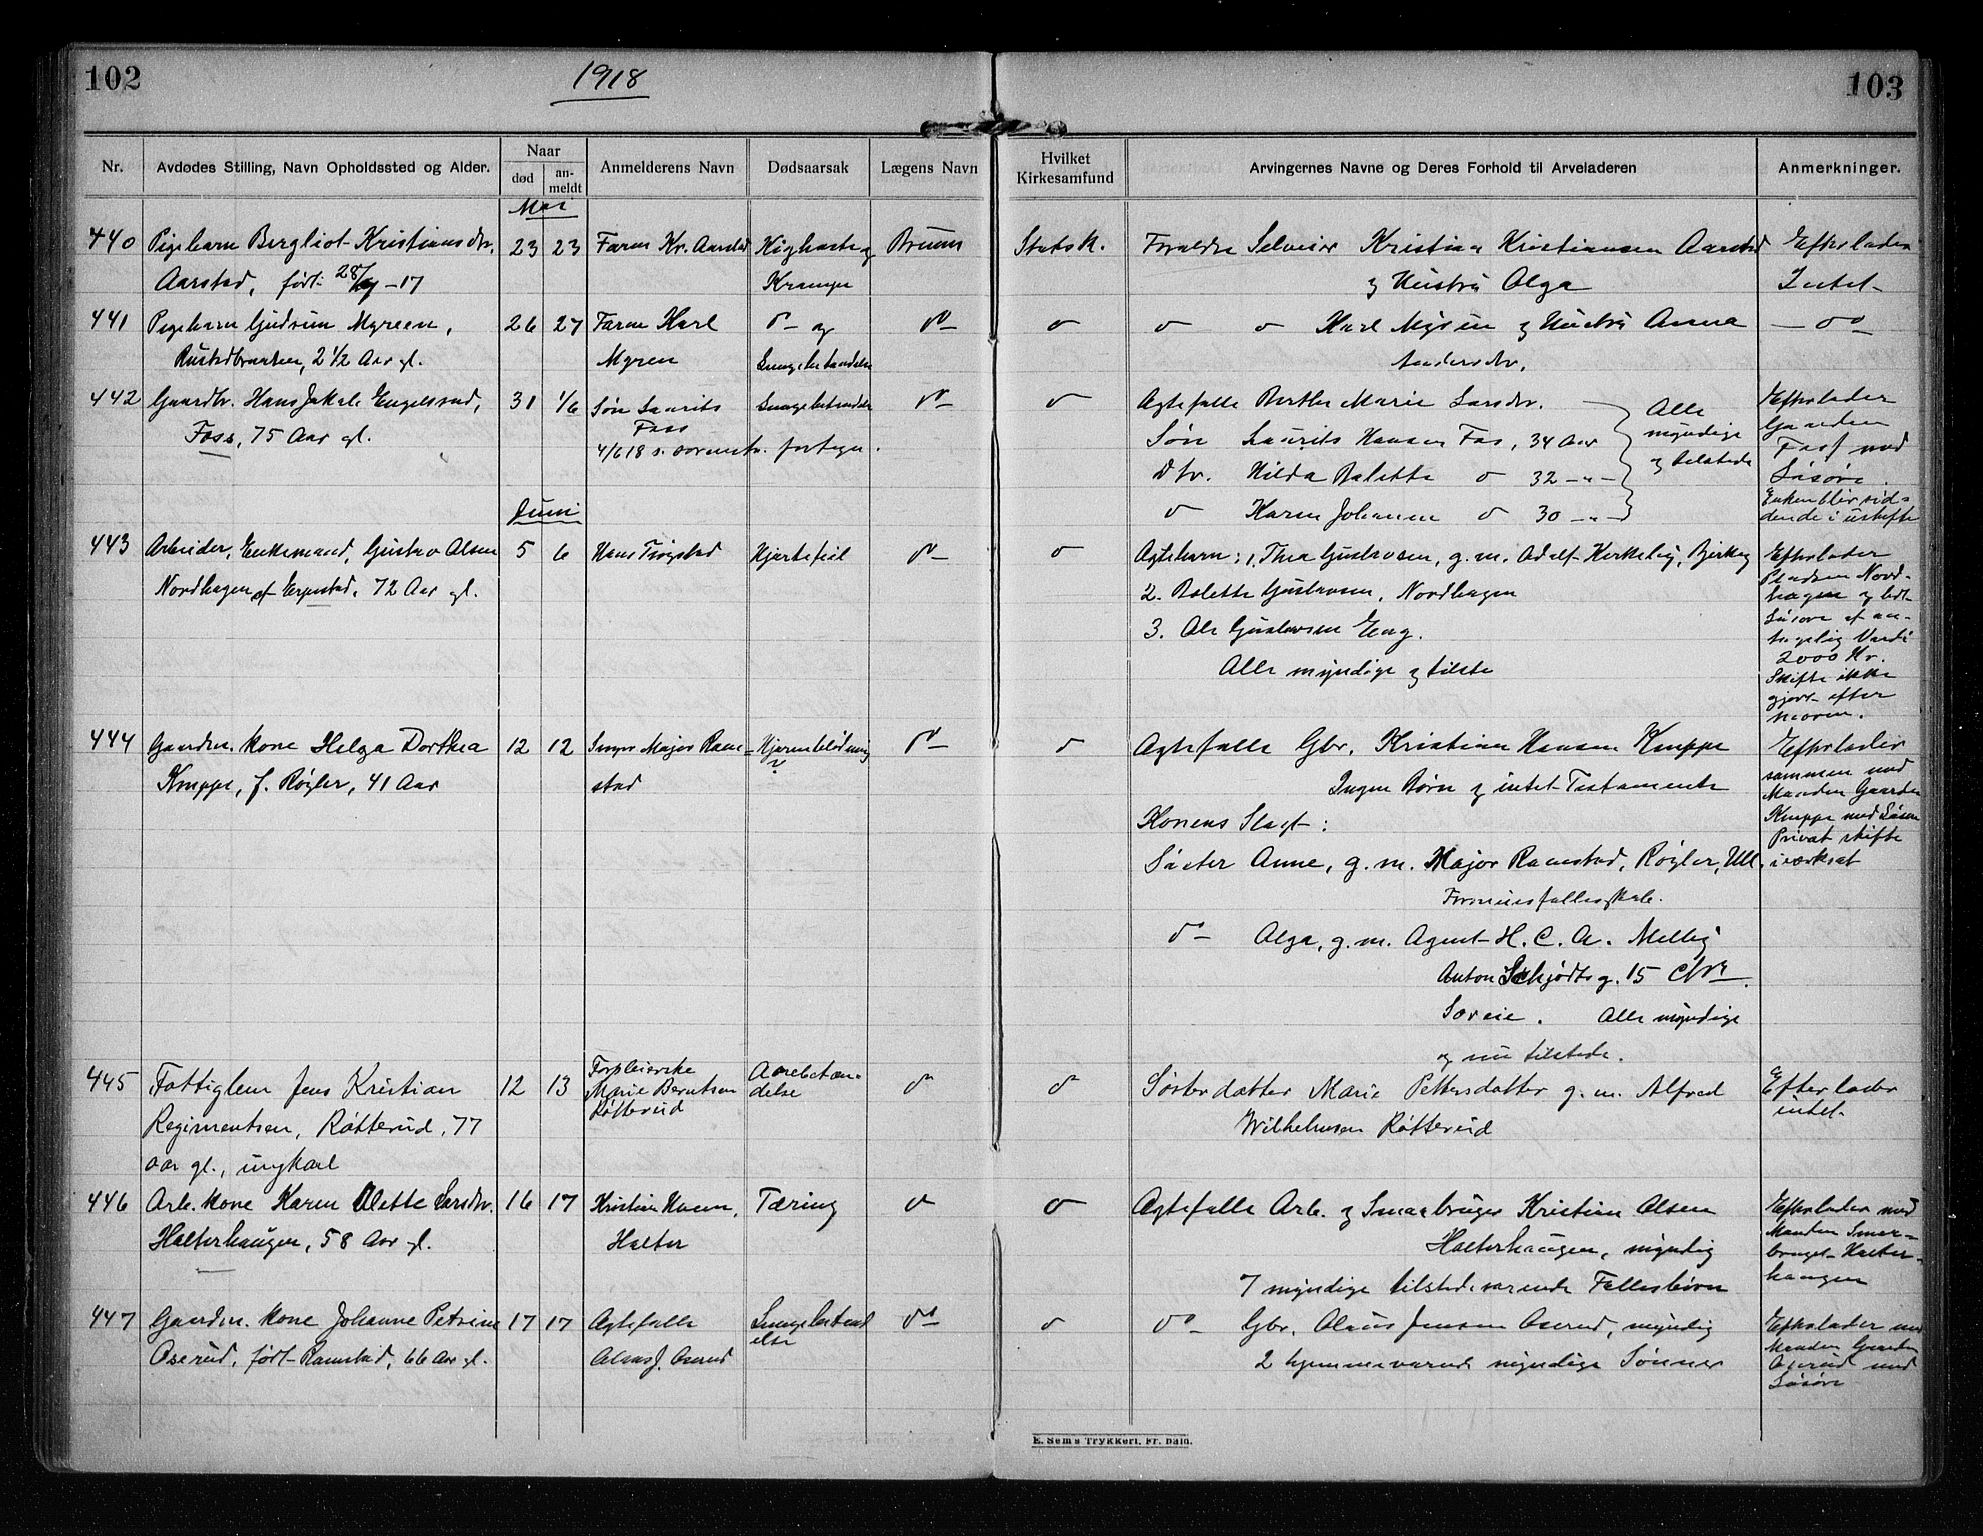 102
1918
103
Nr.
Avdødes Stilling, Navn Opholdssted og Alder.
Naar
død
an-
meldt
Anmelderens Navn
Dødsaarsak
Lægens Navn
Hvilket
Kirkesamfund
Arvingernes Navne og Deres Forhold til Arveladeren
Anmerkninger.
Mai
440 Pigebarn Bergliot Kristiansdtr. 23 23 Faren Kr. Aarstad Kighoste og Bruun Statsk. Foreldre Selveier Kristian Kristiansen Aarstad Efterlader
Aarstad, født 28/ -17 Krampe og Hustru Olga Intet
441 Pigebarn Gudrun Myreen, 26 27 Faren Karl do og do do do do Karl Myren og Hustru Anna do
Rustadbraaten, 2 1/2 Aar gl. Myren Lungebetændelse Andersdtr.
442 Gaardbr. Hans Jakob Engelstad, 31 1/6 Søn Laurits Lungebetændelse do do Agtefælle Berthe Marie Larsdtr. Alle Efterlader
Foss, 75 Aar gl. Foss Søn Laurits Hansen Fos, 34 Aar myndige Gaarden
4/6 18 s. oversendt. fortegn. Dtr. Hilda Bolette do 32 -"- og tilstede Foss med
Løsøre.
Juni do Karen Johanne do 30 -"- Enken blir sid-
dende i uskifte
443 Arbeider, Enkemand, Gustav Olsen 5 6 Hans Trøgstad Hjertefeil do do Agtebarn: 1, Thea Gustavsen, g.m. Adolf Kirkeby, Bjerke Efterlader
Nordhagen af Erpestad, 72 Aar gl. 2. Bolette Gustavsen, Nordhagen Pladsen Nord-
hagen og lidt
3. Ole Gustavsen Eng. Løsøre af an-
tagelig Værdi
Alle myndige og tilste 2000 Kr.
Skifte ikke
gjort efter
moren.
444 Gaardm. kone Helga Dorthea 12 12 Svoger Major Ram- Hjerneblødning do do Agtefælle Gbr. Kristian Hansen Knappe Efterlader
Knappe, f. Røgler, 41 Aar stad ? Ingen Børn og intet Testamente sammen med
Manden Gaarden
Konens Slegt: Knappe med Løsøre
Privat skifte
Søster Anne, g.m. Major Ramstad, Røgler, Ull. iværksat
Formuesfællesskab.
do Olga, g.m. Agent H. C. A. Melby
Anton Schjødtsg. 15 Chra.
Særeie. Alle myndige
og nu tilstede.
445 Fattiglem Jens Kristian 12 13 Forpleierske Aarebetæn- do do Søsterdatter Marie Pettersdatter g.m. Alfred Efterlader
Regimentsen, Røtterud, 77 Marie Berntsen delse Wilhelmsen Røtterud intet.
aar gl., ungkarl Røtterud
446 Arb. kone Karen Olette Larsdtr. 16 17 Kristian Hansen, Tæring do do Agtefælle Arb. og Smaabruger Kristian Olsen Efterlader med
Halterhaugen, 58 Aar gl. Halter Halterhaugen, myndig Manden Smaa-
bruget Halter-
7 myndige tilstedeværende Fællesbørn haugen
447 Gaardm. kone Johanne Petrine 17 17 Agtefælle Lungebetænd do do do Gbr. Olaus Jensen Oserud, myndig Efterlader med
Oserud, født Ramstad, 66 Aar gl. Olaus J. Oserud else 2 hjemmeværende myndige Sønner Manden Gaarden
Oserud med
Løsøre
E. Sems Trykkeri, Fr. hald.